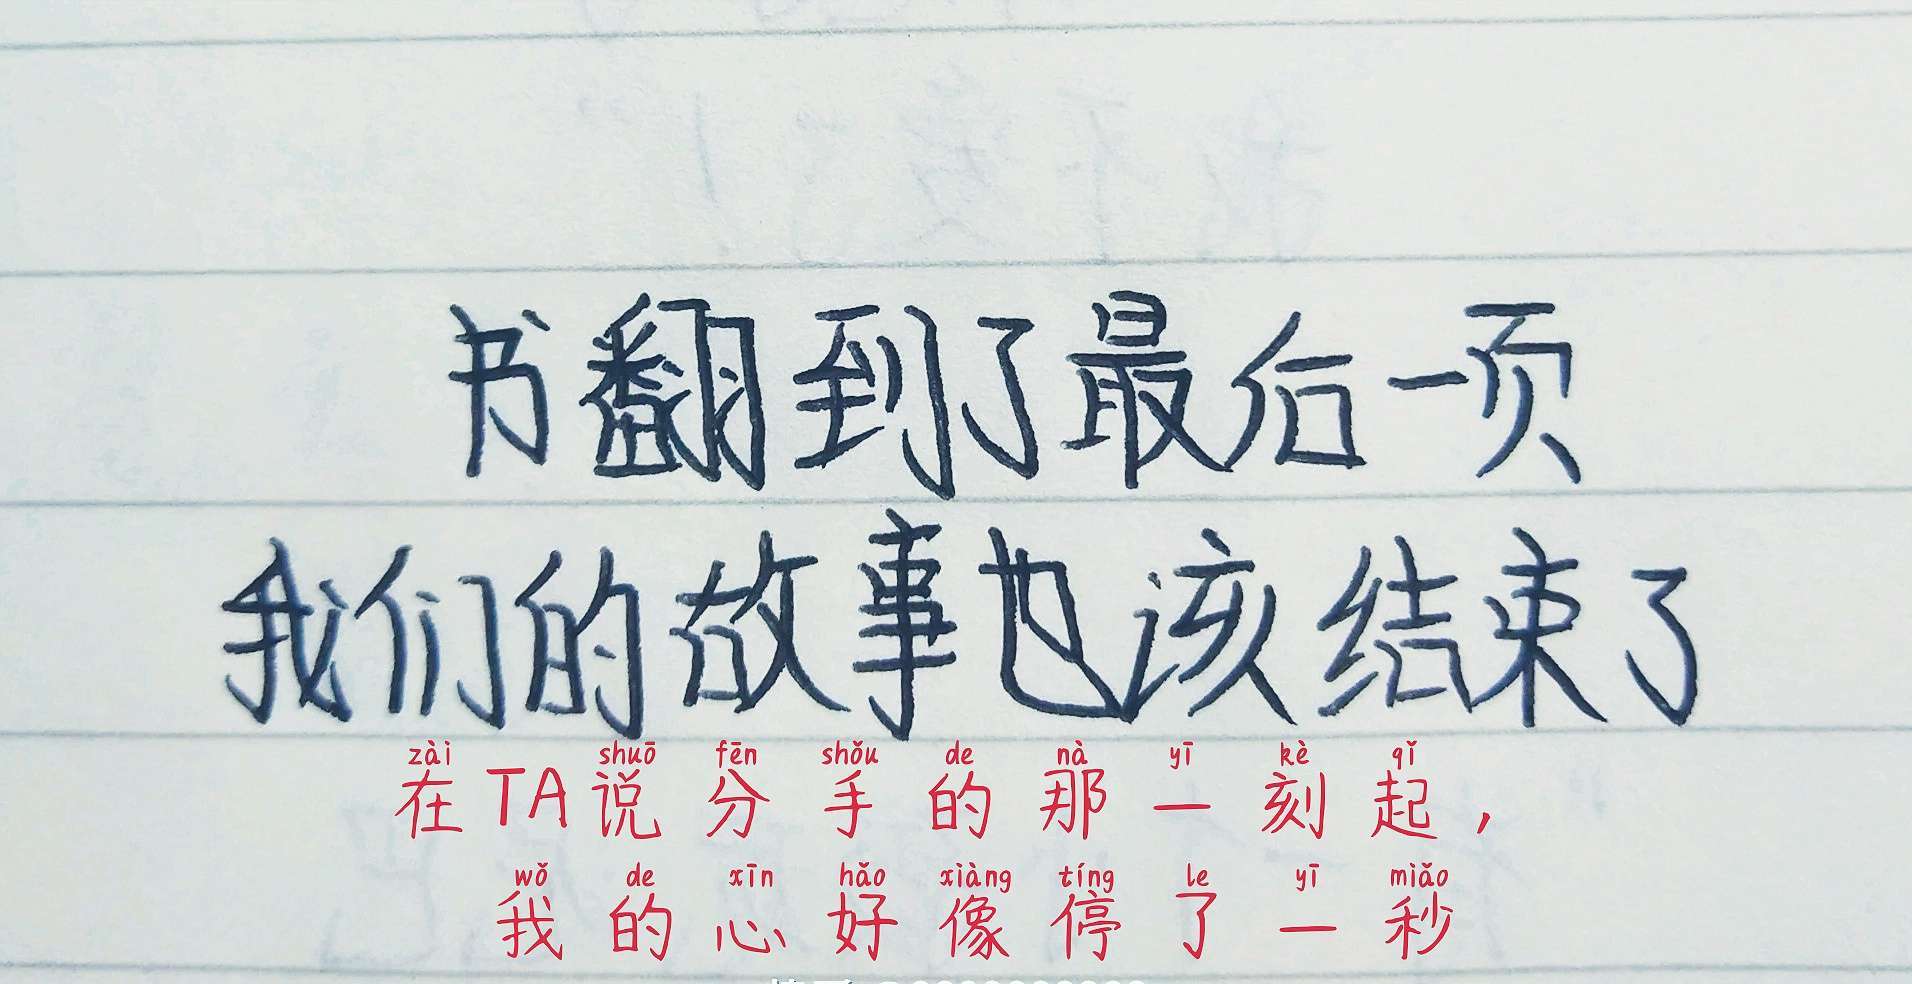 书翻到了最后一页
我们的故事也该结束了
zài shuō fēn shǒu de nà yī kè qǐ
在TA说分手的那一刻起，
wǒ de xīn hǎo xiàng tíng le yī miǎo
我的心好像停了一秒